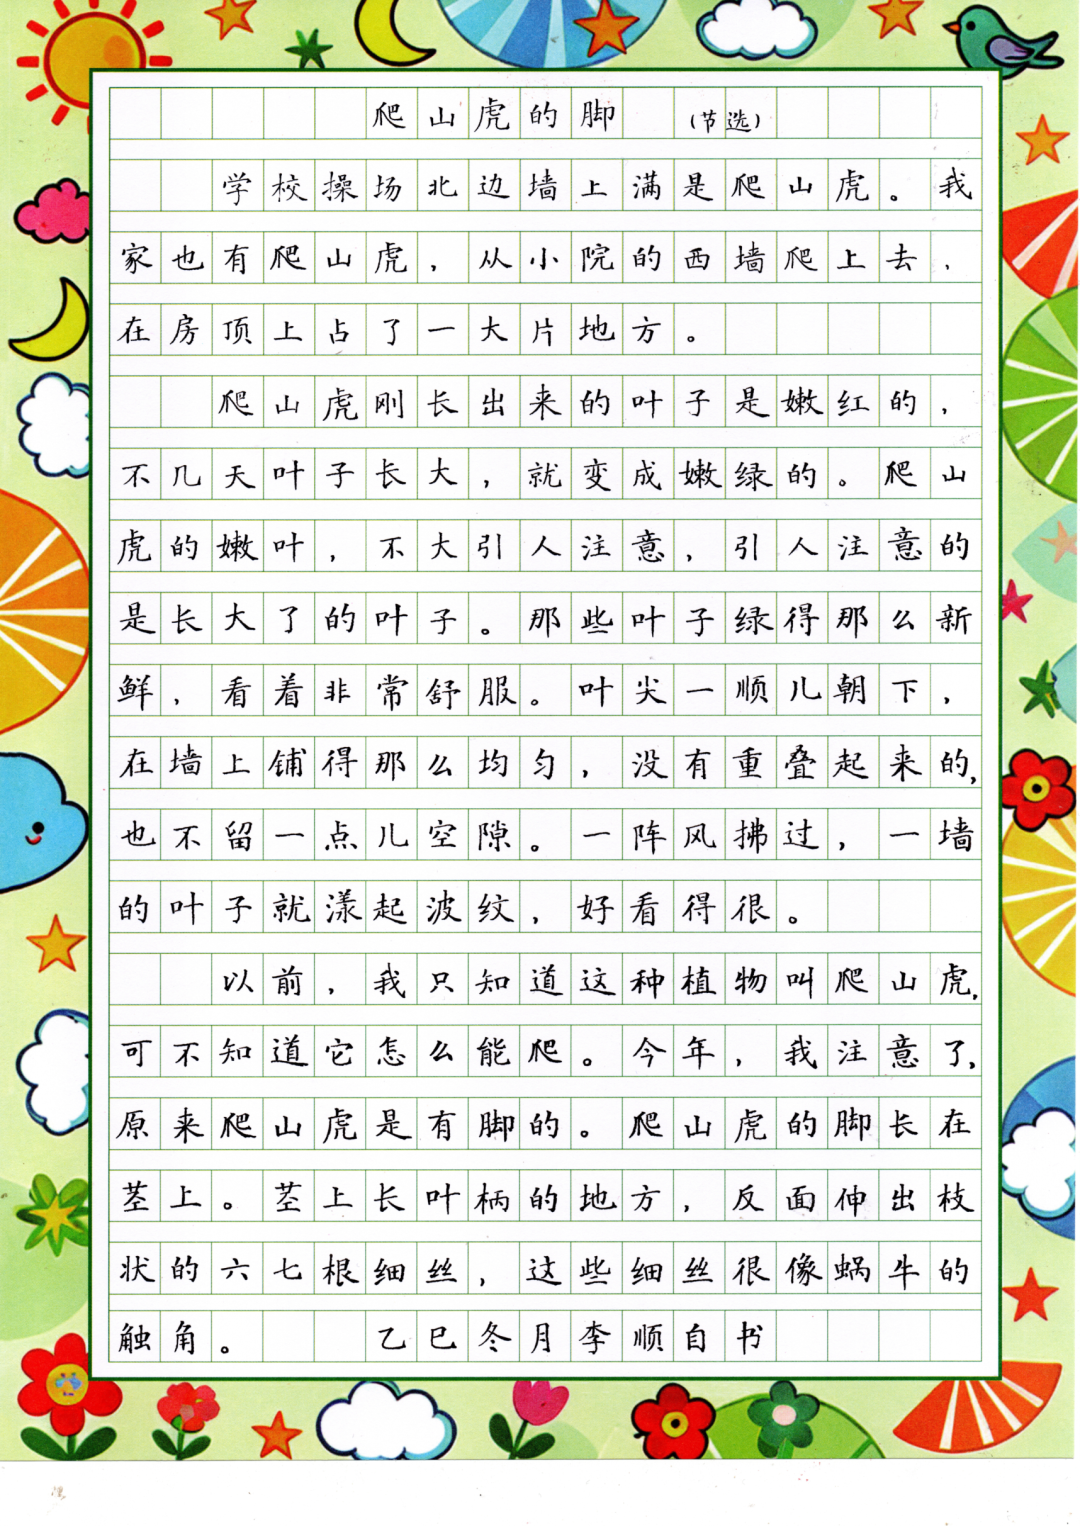 爬山虎的脚 (节选)
学校操场北边墙上满是爬山虎。我
家也有爬山虎，从小院的西墙爬上去，
在房顶上占了一大片地方。
爬山虎刚长出来的叶子是嫩红的，
不几天叶子长大，就变成嫩绿的。爬山
虎的嫩叶，不大引人注意，引人注意的
是长大了的叶子。那些叶子绿得那么新
鲜，看着非常舒服。叶尖一顺儿朝下，
在墙上铺得那么均匀，没有重叠起来的，
也不留一点儿空隙。一阵风拂过，一墙
的叶子就漾起波纹，好看得很。
以前，我只知道这种植物叫爬山虎，
可不知道它怎么能爬。今年，我注意了，
原来爬山虎是有脚的。爬山虎的脚长在
茎上。茎上长叶柄的地方，反面伸出枝
状的六七根细丝，这些细丝很像蜗牛的
触角。 乙巳冬月李顺自书